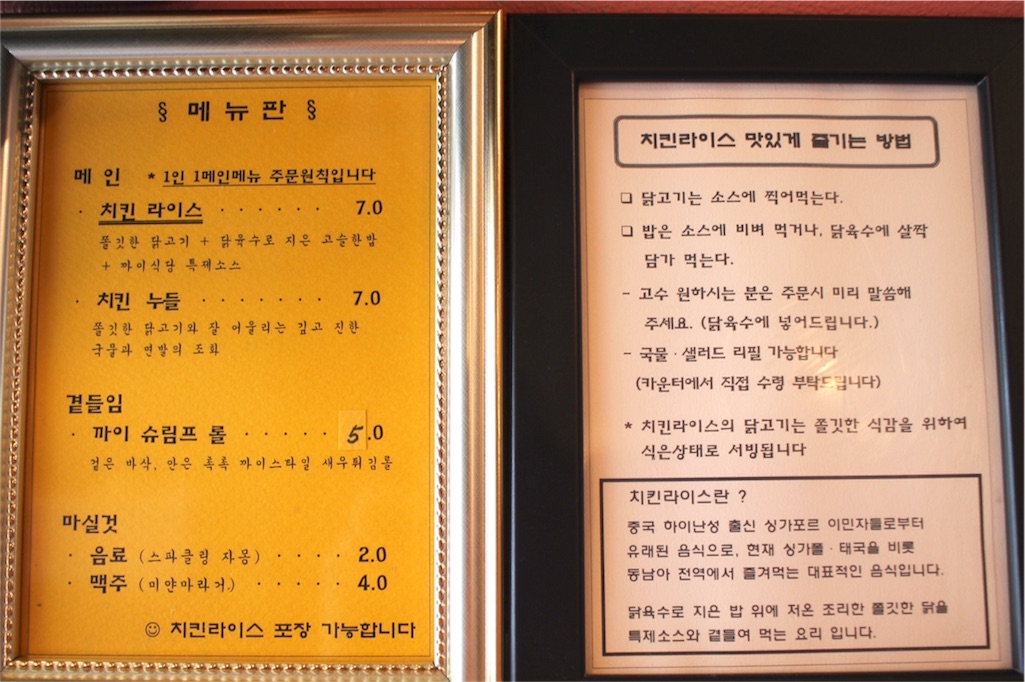 § 메뉴판 §
메 인 * 1인 1메인메뉴 주문원칙입니다
· 치킨 라이스 · · · · · · 7.0
쫄깃한 닭고기 + 닭육수로 지은 고슬한밥
+ 까이식당 특제소스
· 치킨 누들 · · · · · · · 7.0
쫄깃한 닭고기와 잘 어울리는 깊고 진한
국물과 면발의 조화
곁들임
· 까이 슈림프 롤 · · · · · 5.0
겉은 바삭, 안은 촉촉 까이스타일 새우튀김롤
마실것
· 음료 (스파클링 자몽) · · · · 2.0
· 맥주 (미얀마라거.) · · · · · 4.0
☺ 치킨라이스 포장 가능합니다
치킨라이스 맛있게 즐기는 방법
❏ 닭고기는 소스에 찍어먹는다.
❏ 밥은 소스에 비벼 먹거나, 닭육수에 살짝
담가 먹는다.
- 고수 원하시는 분은 주문시 미리 말씀해
주세요. (닭육수에 넣어드립니다.)
- 국물 · 샐러드 리필 가능합니다
(카운터에서 직접 수령 부탁드립니다)
* 치킨라이스의 닭고기는 쫄깃한 식감을 위하여
식은상태로 서빙됩니다
치킨라이스란 ?
중국 하이난성 출신 싱가포르 이민자들로부터
유래된 음식으로, 현재 싱가폴 · 태국을 비롯
동남아 전역에서 즐겨먹는 대표적인 음식입니다.
닭육수로 지은 밥 위에 저온 조리한 쫄깃한 닭을
특제소스와 곁들여 먹는 요리 입니다.